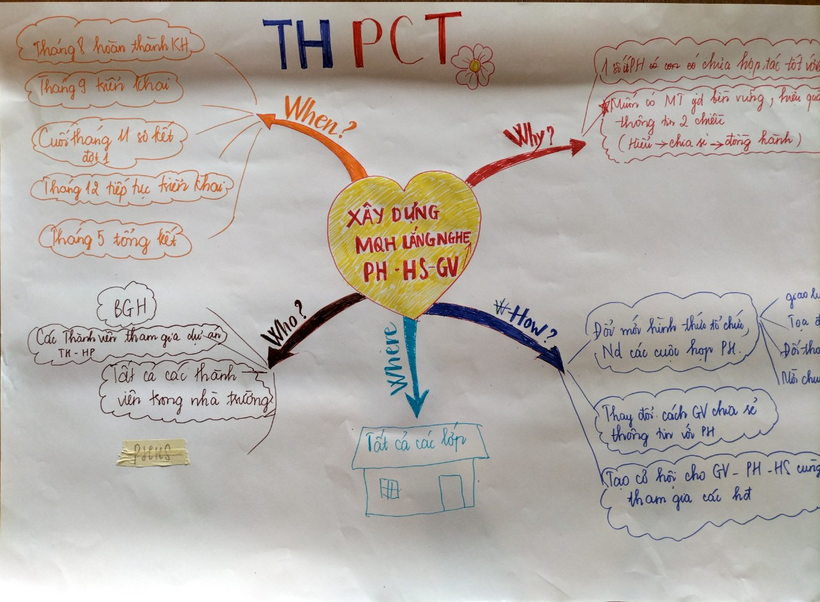 TH PCT
When?
Tháng 8 hoàn thành KH
Tháng 9 triển khai
Cuối tháng 11 sơ kết
đợt 1
Tháng 12 tiếp tục triển khai
Tháng 5 tổng kết
Why?
1 số PH và con có chưa hợp tác tốt với
Muốn có MT gd bền vững, hiệu quả
thông tin 2 chiều
(Hiểu → chia sẻ → đồng hành)
XÂY DỰNG
MQH LẮNG NGHE
PH - HS - GV
Who?
BGH
Các thành viên tham gia dự án
TH - HP
Tất cả các thành
viên trong nhà trường
Where
Tất cả các lớp
How?
Đổi mới hình thức tổ chức,
Nd các cuộc họp PH.
giao
Tọa
Đối
Nói
Thay đổi cách GV chia sẻ
thông tin với PH
Tạo cơ hội cho GV - PH - HS cùng
tham gia các hđ